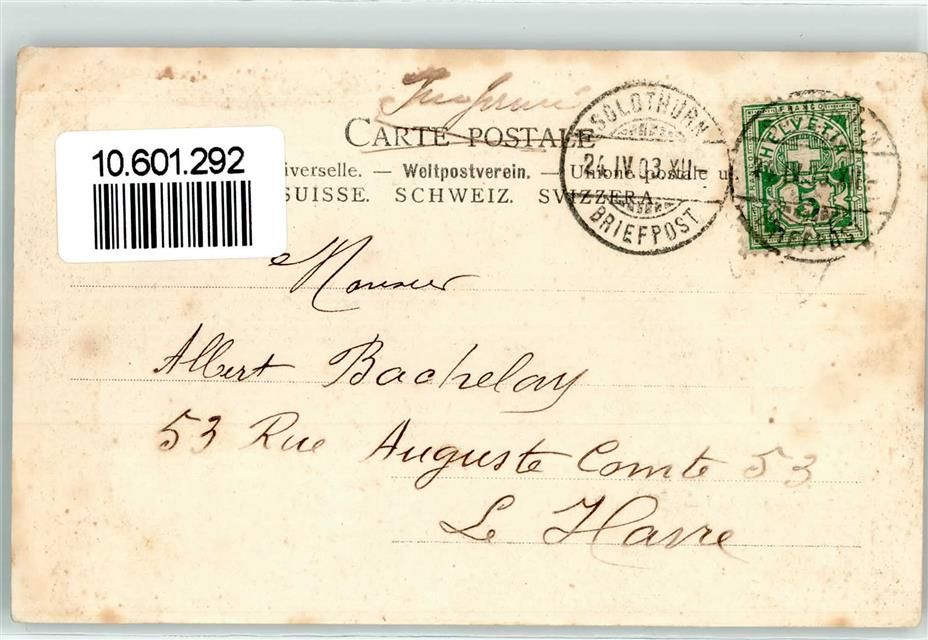 Imprimé
CARTE POSTALE
10.601.292
iverselle. — Weltpostverein. — Unione postale u
SUISSE. SCHWEIZ. SVIZZERA.
SOLOTHURN
24.IV.03.XII
BRIEFPOST
HELVETIA
FRANCO
5
Monsieur
Albert Bachelay
53 Rue Auguste Comte 53
Le Havre